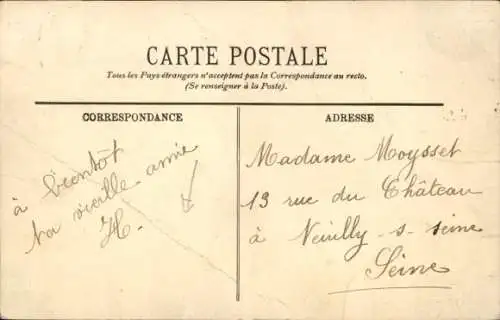 CARTE POSTALE
Tous les Pays étrangers n'acceptent pas la Correspondance au recto.
(Se renseigner à la Poste).
CORRESPONDANCE
à bientôt
ta vieille amie
H.
ADRESSE
Madame Moysset
13 rue du Château
à Neuilly-s-seine
Seine